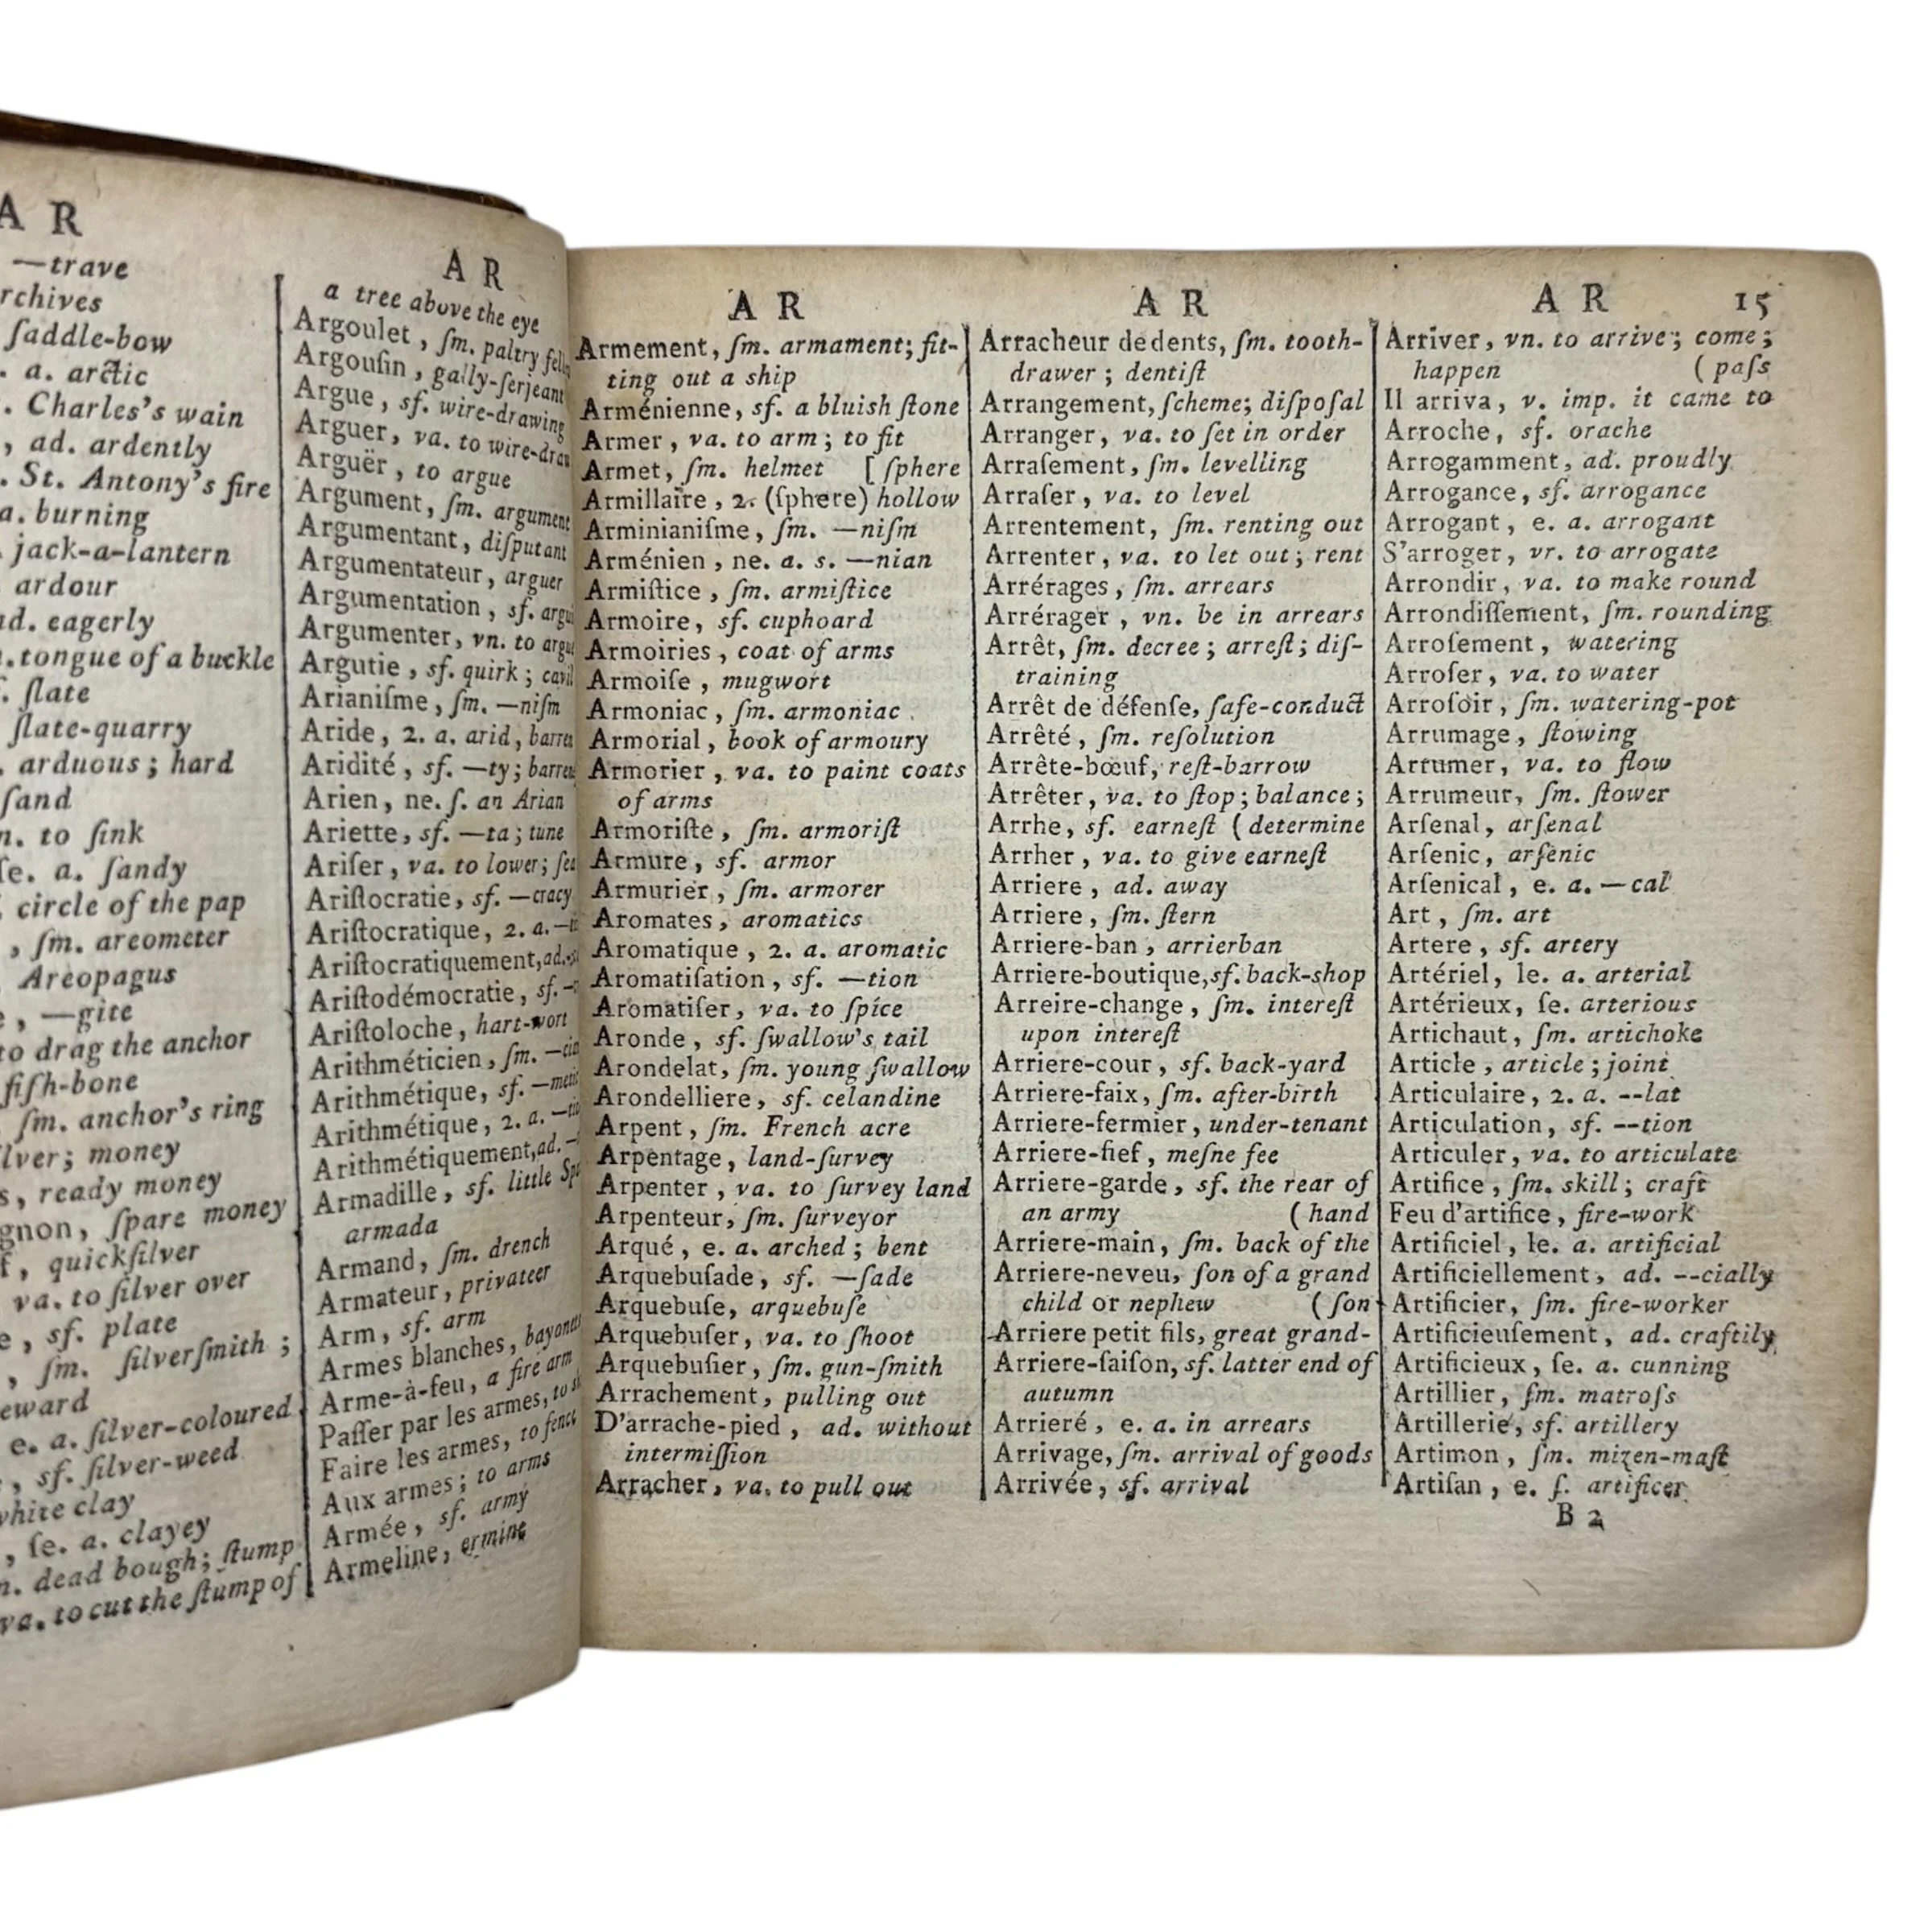 A R
—trave
rchives
ſaddle-bow
. a. arctic
. Charles's wain
, ad. ardently
. St. Antony's fire
a. burning
jack-a-lantern
ardour
ad. eagerly
tongue of a buckle
. ſlate
ſlate-quarry
. arduous ; hard
ſand
n. to ſink
ſe. a. ſandy
circle of the pap
, ſm. areometer
Areopagus
, —gite
to drag the anchor
fiſh-bone
ſm. anchor's ring
lver; money
s, ready money
gnon, ſpare money
f, quickſilver
va. to ſilver over
e, sf. plate
, ſm. ſilverſmith ;
eward
e. a. ſilver-coloured
, sf. ſilver-weed
white clay
, ſe. a. clayey
n. dead bough; ſtump
va. to cut the ſtump of
A R
a tree above the eye
Argoulet, ſm. paltry
Argouſin, gally-ſerjeant
Argue, sf. wire-drawing
Arguer, va. to wire-
Arguër, to argue
Argument, ſm. argument
Argumentant, diſputant
Argumentateur, arguer
Argumentation, sf.
Argumenter, vn. to
Argutie, sf. quirk ;
Arianiſme, ſm. —niſm
Aride, 2. a. arid,
Aridité, sf. —ty;
Arien, ne. ſ. an Arian
Ariette, sf. —ta; tune
Ariſer, va. to lower;
Ariſtocratie, sf. —cracy
Ariſtocratique, 2. a.
Ariſtocratiquement, ad.
Ariſtodémocratie, sf.
Ariſtoloche, hart-wort
Arithméticien, ſm.
Arithmétique, sf.
Arithmétique, 2. a.
Arithmétiquement, ad.
Armadille, sf. little
armada
Armand, ſm. drench
Armateur, privateer
Arm, sf. arm
Armes blanches,
Arme-à-feu, a fire arm
Paſſer par les armes, to
Faire les armes, to fence
Aux armes; to arms
Armée, sf. army
Armeline, ermine
A R
Armement, ſm. armament; fit-
ting out a ship
Arménienne, sf. a bluish ſtone
Armer, va. to arm ; to fit
Armet, ſm. helmet [ ſphere
Armillaire, 2. (ſphere) hollow
Arminianiſme, ſm. —niſm
Arménien, ne. a. s. —nian
Armiſtice, ſm. armiſtice
Armoire, sf. cuphoard
Armoiries, coat of arms
Armoiſe, mugwort
Armoniac, ſm. armoniac
Armorial, book of armoury
Armorier, va. to paint coats
of arms
Armoriſte, ſm. armoriſt
Armure, sf. armor
Armurier, ſm. armorer
Aromates, aromatics
Aromatique, 2. a. aromatic
Aromatiſation, sf. —tion
Aromatiſer, va. to ſpice
Aronde, sf. ſwallow's tail
Arondelat, ſm. young ſwallow
Arondelliere, sf. celandine
Arpent, ſm. French acre
Arpentage, land-ſurvey
Arpenter, va. to ſurvey land
Arpenteur, ſm. ſurveyor
Arqué, e. a. arched ; bent
Arquebuſade, sf. —ſade
Arquebuſe, arquebuſe
Arquebuſer, va. to ſhoot
Arquebuſier, ſm. gun-ſmith
Arrachement, pulling out
D'arrache-pied, ad. without
intermiſſion
Arracher, va. to pull out
A R
Arracheur de dents, ſm. tooth-
drawer ; dentiſt
Arrangement, ſcheme; diſpoſal
Arranger, va. to ſet in order
Arraſement, ſm. levelling
Arraſer, va. to level
Arrentement, ſm. renting out
Arrenter, va. to let out ; rent
Arrérages, ſm. arrears
Arrérager, vn. be in arrears
Arrêt, ſm. decree ; arreſt ; diſ-
training
Arrêt de défenſe, ſafe-conduct
Arrêté, ſm. reſolution
Arrête-bœuf, reſt-barrow
Arrêter, va. to ſtop ; balance ;
Arrhe, sf. earneſt ( determine
Arrher, va. to give earneſt
Arriere, ad. away
Arriere, ſm. ſtern
Arriere-ban, arrierban
Arriere-boutique, sf. back-shop
Arreire-change, ſm. intereſt
upon intereſt
Arriere-cour, sf. back-yard
Arriere-faix, ſm. after-birth
Arriere-fermier, under-tenant
Arriere-fief, meſne fee
Arriere-garde, sf. the rear of
an army ( hand
Arriere-main, ſm. back of the
Arriere-neveu, ſon of a grand
child or nephew ( ſon
Arriere petit fils, great grand-
Arriere-ſaiſon, sf. latter end of
autumn
Arrieré, e. a. in arrears
Arrivage, ſm. arrival of goods
Arrivée, sf. arrival
A R 15
Arriver, vn. to arrive ; come ;
happen ( paſs
Il arriva, v. imp. it came to
Arroche, sf. orache
Arrogamment, ad. proudly
Arrogance, sf. arrogance
Arrogant, e. a. arrogant
S'arroger, vr. to arrogate
Arrondir, va. to make round
Arrondiſſement, ſm. rounding
Arroſement, watering
Arroſer, va. to water
Arroſoir, ſm. watering-pot
Arrumage, ſtowing
Arrumer, va. to ſlow
Arrumeur, ſm. ſtower
Arſenal, arſenal
Arſenic, arſenic
Arſenical, e. a. —cal
Art, ſm. art
Artere, sf. artery
Artériel, le. a. arterial
Artérieux, ſe. arterious
Artichaut, ſm. artichoke
Article, article ; joint
Articulaire, 2. a. --lat
Articulation, sf. --tion
Articuler, va. to articulate
Artifice, ſm. skill ; craft
Feu d'artifice, fire-work
Artificiel, le. a. artificial
Artificiellement, ad. --cially
Artificier, ſm. fire-worker
Artificieuſement, ad. craftily
Artificieux, ſe. a. cunning
Artillier, ſm. matroſs
Artillerie, sf. artillery
Artimon, ſm. mizen-maſt
Artiſan, e. ſ. artificer
B 2